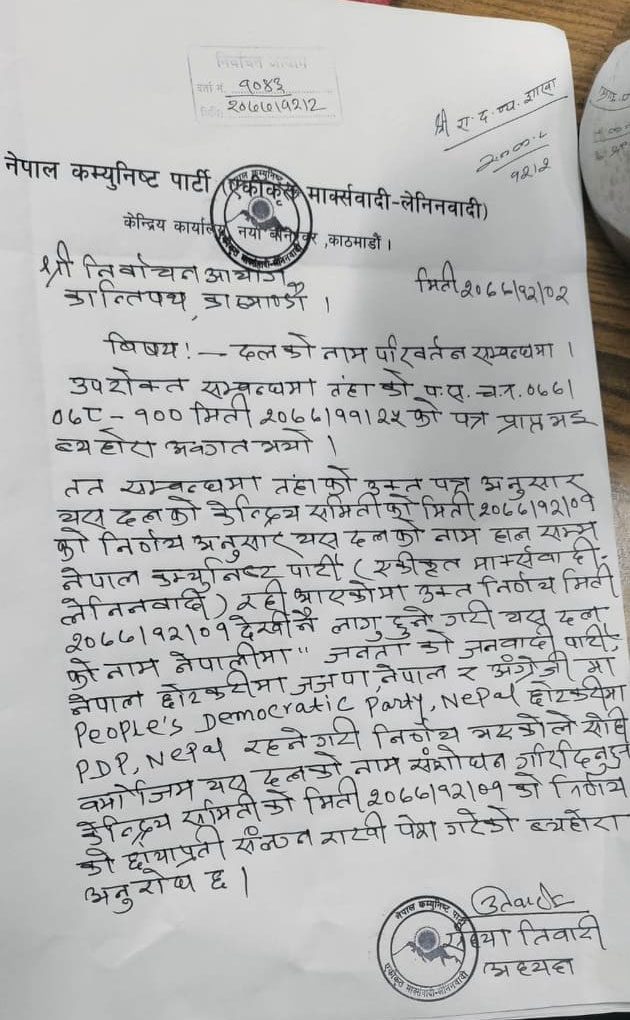 निर्वाचन आयोग
दर्ता नं. १०४३
मितिः २०६६।१२।२
श्री रा. द. ब्य. शाखा
१२।२
नेपाल कम्युनिष्ट पार्टी (एकीकृत मार्क्सवादी-लेनिनवादी)
केन्द्रिय कार्यालय नयाँ बानेश्वर ,काठमाडौं ।
श्री निर्वाचन आयोग
कान्तिपथ, काठमाण्डौ ।
मिती २०६६।१२।०२
बिषय! — दलको नाम परिवर्तन सम्बन्धमा ।
उपरोक्त सम्बन्धमा तंहा को प.स. च.न. ०६६।
०६८ - १०० मिती २०६६।११।२५ को पत्र प्राप्त भइ
ब्यहोरा अवगत भयो ।
तत सम्बन्धमा तंहाको उक्त पत्र अनुसार
यस दलको केन्द्रिय समितीको मिती २०६६।१२।०१
को निर्णय अनुसार यस दलको नाम हाल सम्म
नेपाल कम्युनिष्ट पार्टी (एकीकृत मार्क्सवादी-
लेनिनवादी) रही आएकोमा उक्त निर्णय मिती
२०६६।१२।०१ देखी नै लागु हुने गरी यस दल
को नाम नेपालीमा " जनता को जनवादी पार्टी,
नेपाल छोटकरीमा जजपा, नेपाल र अंग्रेजी मा
People's Democratic Party, Nepal छोटकरीमा
PDP, Nepal रहने गरी निर्णय भएकोले सोही
बमोजिम यस दलको नाम संशोधन गरिदिनुहुन
केन्द्रिय समिती को मिती २०६६।१२।०१ को निर्णय
को छायाप्रती संलग्न राखी पेश गरेको ब्यहोरा
अनुरोध छ ।
नेपाल कम्युनिष्ट पार्टी
एकीकृत मार्क्सवादी-लेनिनवादी
तिवारी
अध्यक्ष